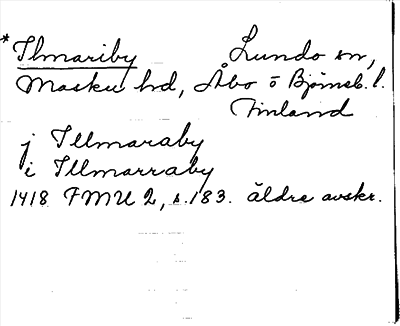 *Ilmariby Lundo sn,
Masku hd, Åbo o Björneb. l.
Finland
j Illmaraby
i Illmarraby
1418 FMU 2, s. 183. äldre avskr.